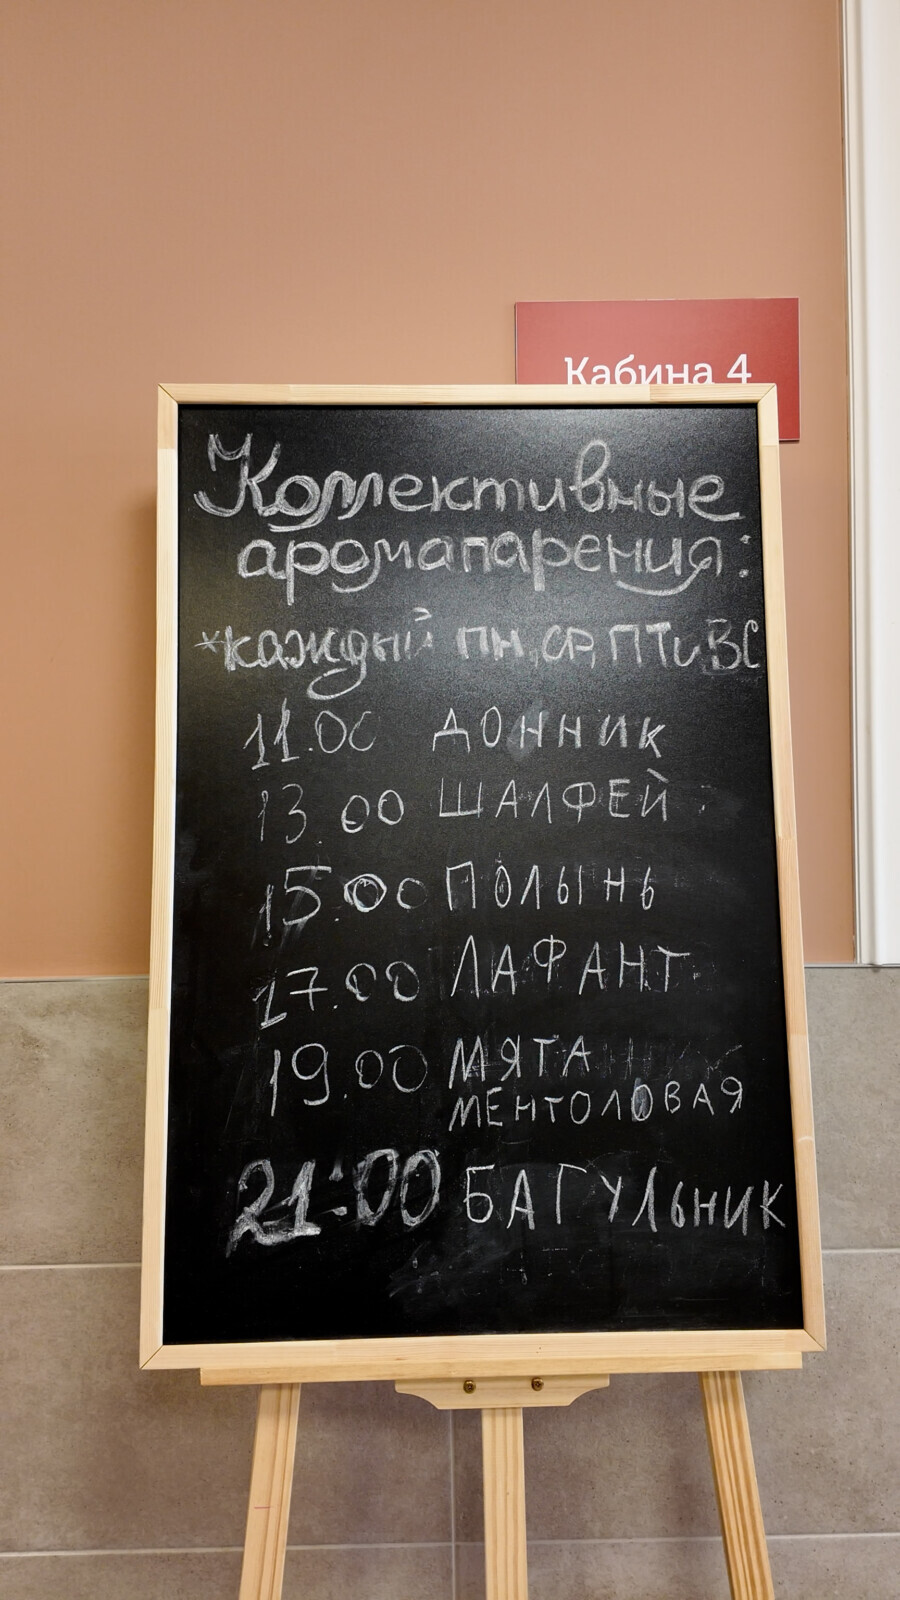 Кабина 4
Коллективные
аромапарения:
*каждый пн, ср, ПТ и ВС
11.00 ДОННИК
13.00 ШАЛФЕЙ
15.00 ПОЛЫНЬ
17.00 ЛАФАНТ
19.00 МЯТА
МЕНТОЛОВАЯ
21:00 БАГУЛЬНИК